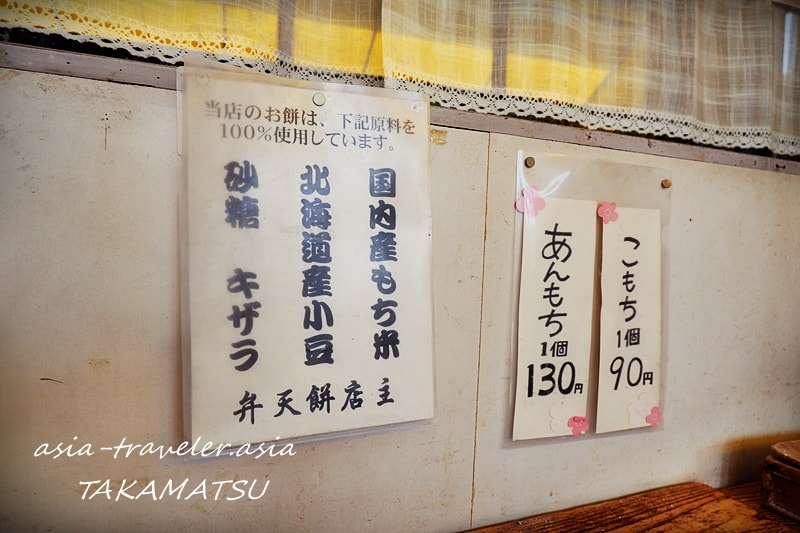 当店のお餅は、下記原料を
100%使用しています。
国内産もち米
北海道産小豆
砂糖 キザラ
弁天餅店主
こもち
1個
90円
あんもち
1個
130円
asia-traveler.asia
TAKAMATSU